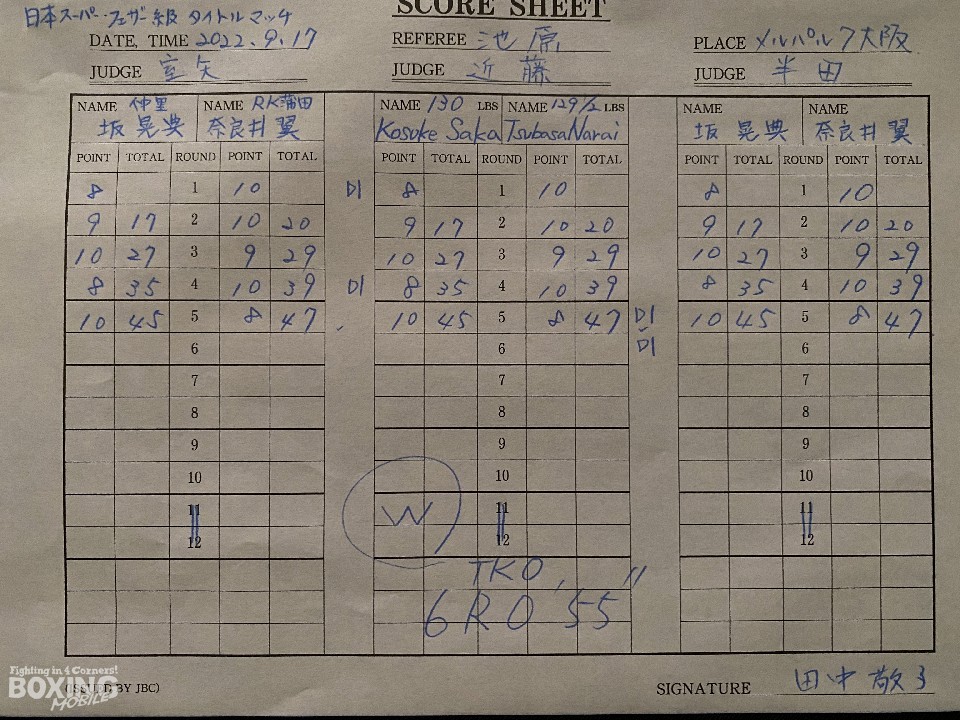 SCORE SHEET
日本スーパー・フェザー級 タイトルマッチ
DATE, TIME 2022.9.17 REFEREE 池原 PLACE メルパルク大阪
JUDGE 室矢 JUDGE 近藤 JUDGE 半田
NAME 仲里 NAME RK蒲田 NAME 130 LBS NAME 129 1/2 LBS NAME NAME
坂 晃典 奈良井 翼 Kosuke Saka Tsubasa Narai 坂 晃典 奈良井 翼
POINT TOTAL ROUND POINT TOTAL POINT TOTAL ROUND POINT TOTAL POINT TOTAL ROUND POINT TOTAL
8 1 10 D1 8 1 10 8 1 10
9 17 2 10 20 9 17 2 10 20 9 17 2 10 20
10 27 3 9 29 10 27 3 9 29 10 27 3 9 29
8 35 4 10 39 D1 8 35 4 10 39 8 35 4 10 39
10 45 5 8 47 10 45 5 8 47 D1 10 45 5 8 47
6 6 D1 6
7 7 7
8 8 8
9 9 9
10 10 10
11 W 11 11
12 12 12
TKO
6R 0'55"
Fighting in 4 Corners!
BOXING
MOBILE
(ISSUED BY JBC) SIGNATURE 田中 敬